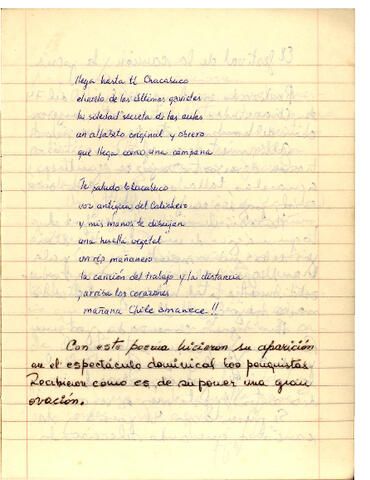 llega hasta ti Chacabuco
el vuelo de las últimas gaviotas
la soledad secreta de las aulas
un alfabeto original y obrero
que llega como una campana
Te saludo Chacabuco
voz antigua del Calichero
y mis manos te dibujan
una huella vegetal
un rojo mañanero
la canción del trabajo y la distancia
¡arriba los corazones
mañana Chile amanece!!
Con este poema hicieron su aparición
en el espectáculo dominical los pampinistas
Recibieron como es de suponer una gran
ovación.